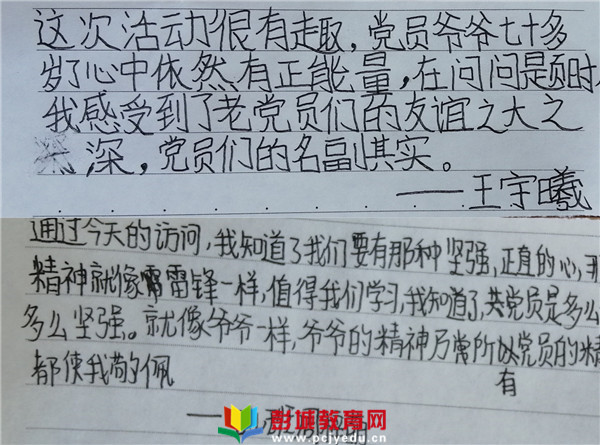 这次活动很有走趣，党员爷爷七十多
岁了心中依然有正能量，在问问是页时
我感受到了老党员们的友谊之大之
深，党员们的名副其实。
——王宇曦
通过今天的访问，我知道了我们要有那种坚强，正直的心，
精神就像雷雷锋一样，值得我们学习，我知道了，共党员是多么
多么坚强。就像爷爷一样，爷爷的精神乃党所以党员的精
都使我敬佩
有
彭城教育网
www.pcjyedu.cn